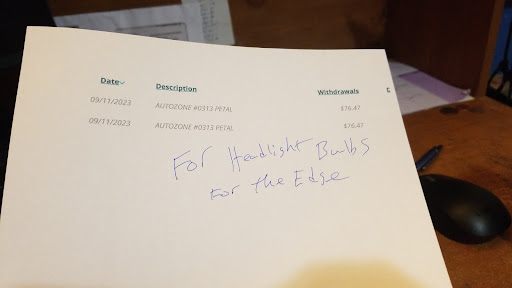 Date Description Withdrawals
09/11/2023 AUTOZONE #0313 PETAL $76.47
09/11/2023 AUTOZONE #0313 PETAL $76.47
For Headlight Bulbs
For the Edge